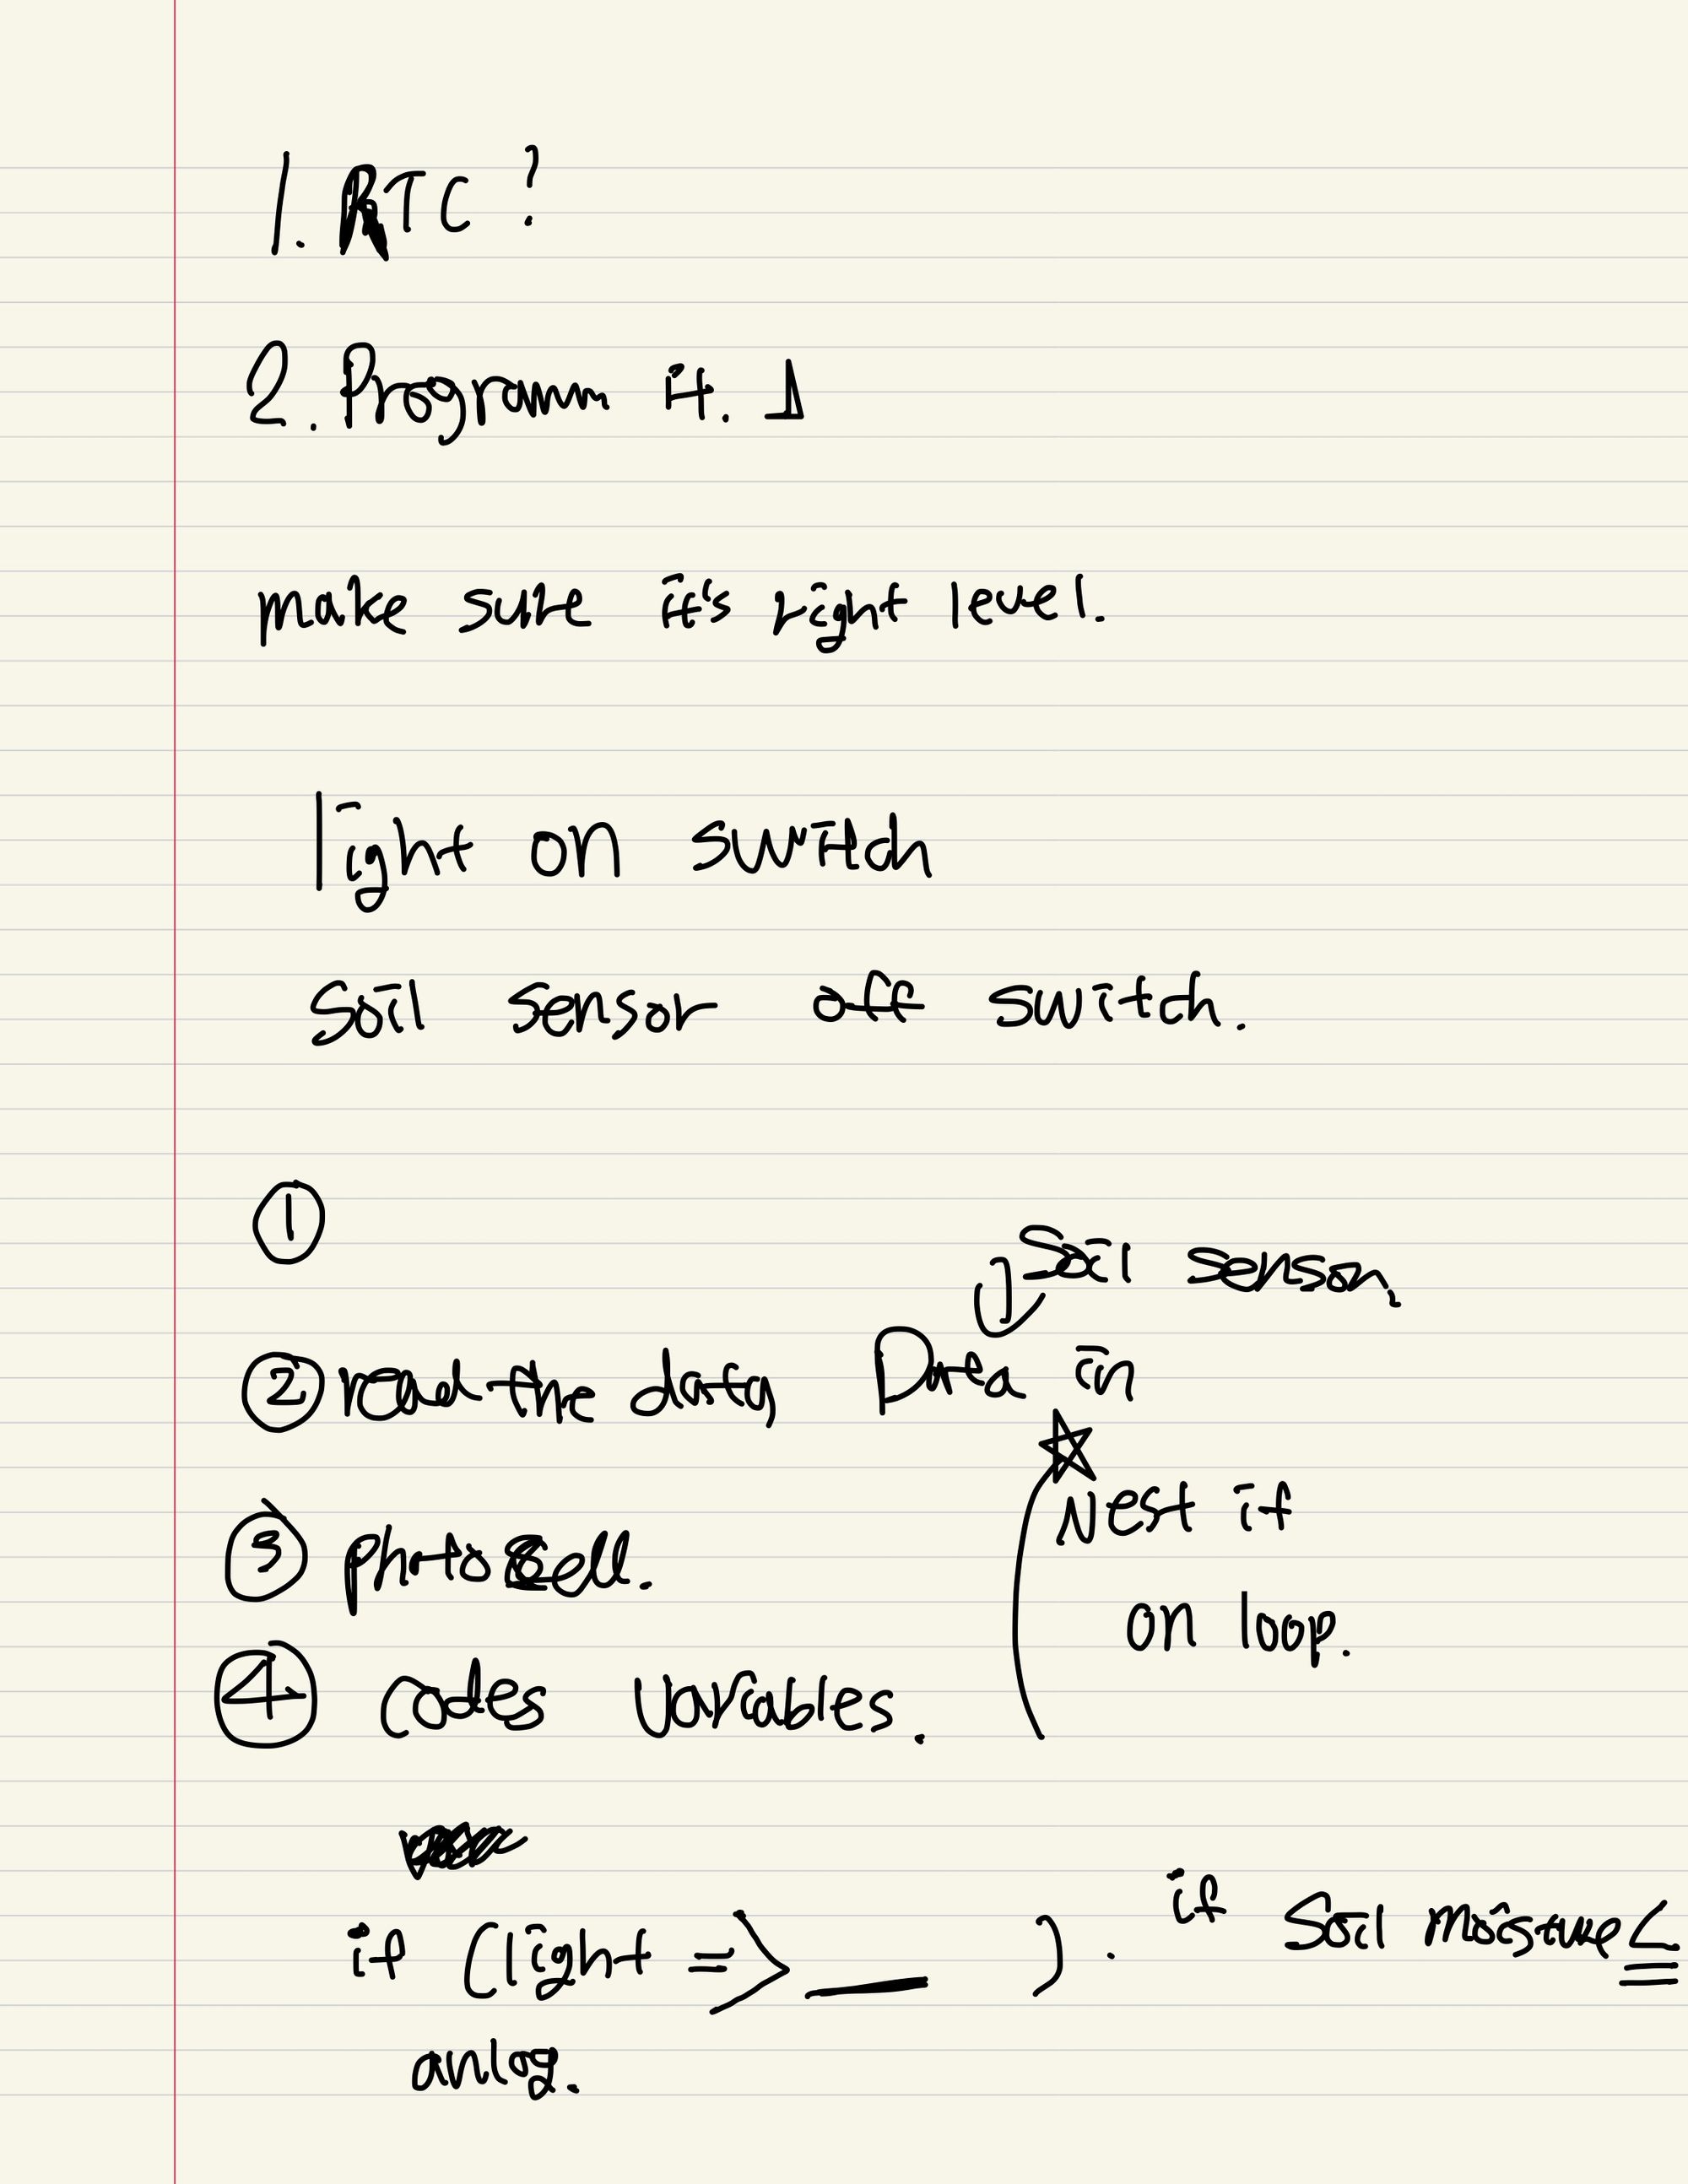 1. RTC ?
2. Program it.
make sure it's right level.
light on switch
Soil sensor off switch.
①
Soil sensor
② read the data, Data in
Nest if
③ photocell.
on loop.
④ codes variables.
if (light => ___ ). if Soil
anlog.